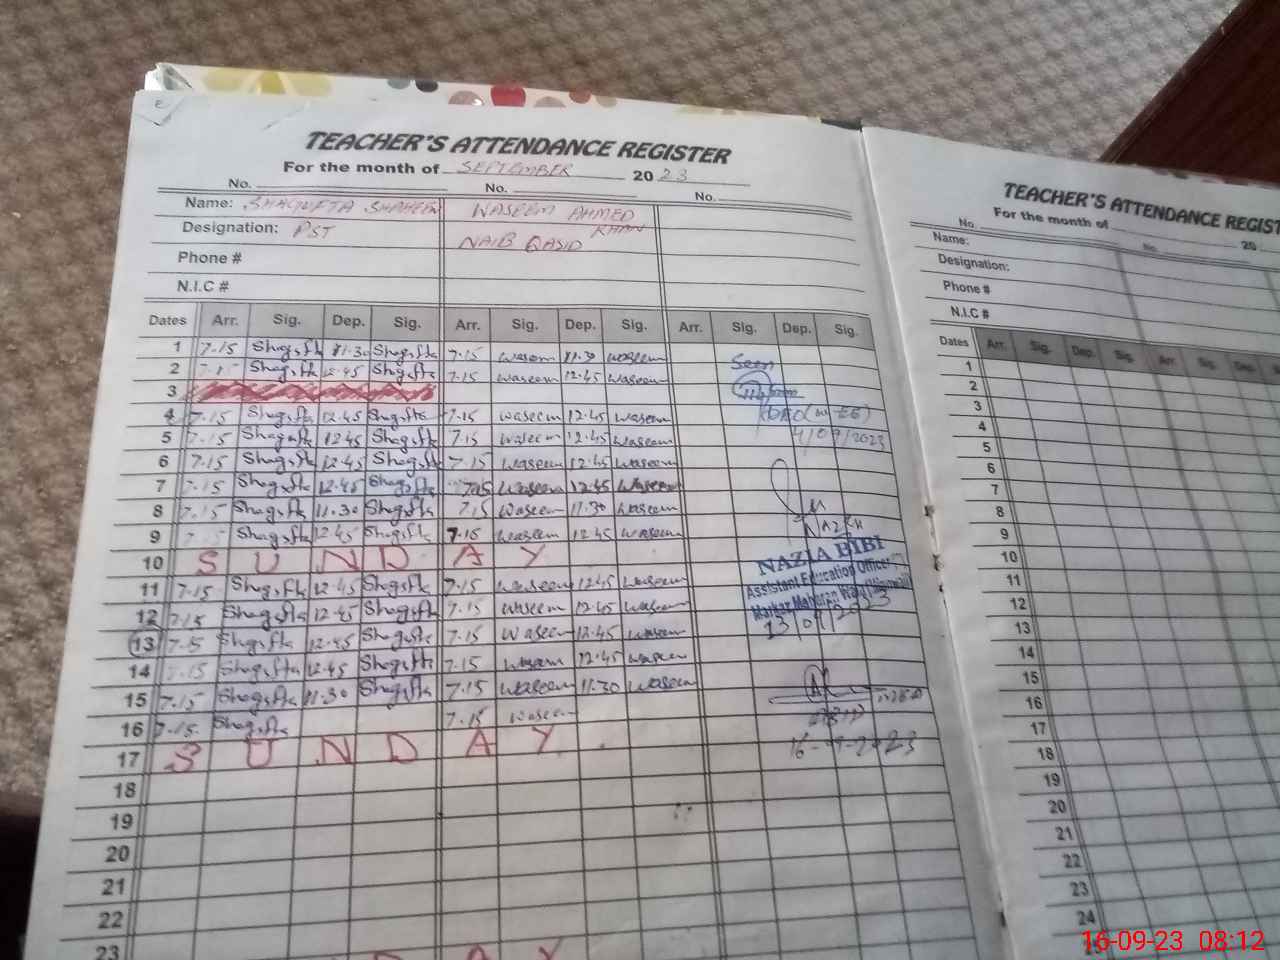 TEACHER'S ATTENDANCE REGISTER
For the month of SEPTEMBER 2023
No. No. No.
Name: SHAGUFTA SHAHEEN WASEEM AHMED KHAN
Designation: PST NAIB QASID
Phone #
N.I.C #
Dates Arr. Sig. Dep. Sig. Arr. Sig. Dep. Sig. Arr. Sig. Dep. Sig.
1 7.15 Shagufta 11.30 Shagufta 7.15 waseem 11.30 waseem
2 Shagufta 12.45 Shagufta 7.15 waseem 12.45 waseem
3
4 7.15 Shagufta 12.45 Shagufta 7.15 waseem 12.45 waseem
5 7.15 Shagufta 12.45 Shagufta 7.15 waseem 12.45 waseem
6 7.15 Shagufta 12.45 Shagufta 7.15 waseem 12.45 waseem
7 7.15 Shagufta 12.45 Shagufta waseem 12.45 waseem
8 7.15 Shagufta 11.30 Shagufta 7.15 waseem 11.30 waseem
9 Shagufta 12.45 Shagufta 7.15 waseem 12.45 waseem
10 S U N D A Y
11 7.15 Shagufta 12.45 Shagufta 7.15 waseem 12.45 waseem
12 7.15 Shagufta 12.45 Shagufta 7.15 waseem 12.45 waseem
13 7.15 Shagufta 12.45 Shagufta 7.15 waseem 12.45 waseem
14 7.15 Shagufta 12.45 Shagufta 7.15 waseem 12.45 waseem
15 7.15 Shagufta 11.30 Shagufta 7.15 waseem 11.30 waseem
16 7.15 Shagufta 7.15 waseem
17 S U N D A Y
18
19
20
21
22
23 A Y
Seen
4/09/2023
NAZIA BIBI
Assistant Education Officer
Markaz
16-09-2023
TEACHER'S ATTENDANCE REGIST
For the month of 20
No. No.
Name:
Designation:
Phone #
N.I.C #
Dates Arr. Sig. Dep. Sig. Arr. Sig. Dep.
1
2
3
4
5
6
7
8
9
10
11
12
13
14
15
16
17
18
19
20
21
22
23
24
16-09-23 08:12